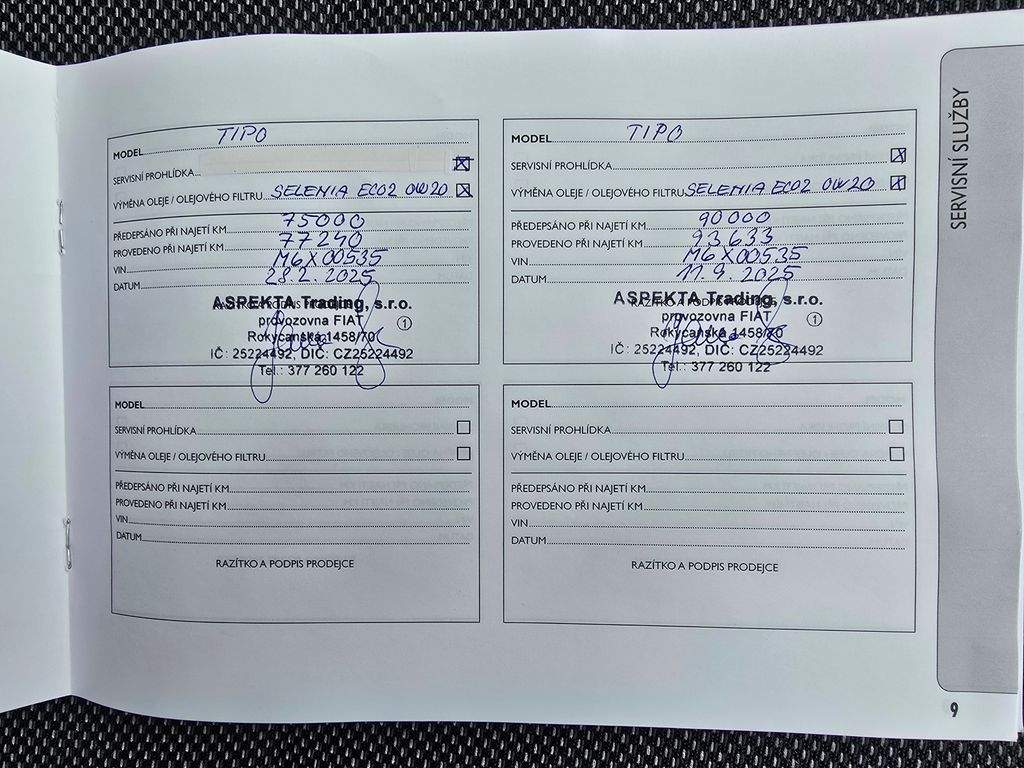 SERVISNÍ SLUŽBY
MODEL TIPO
SERVISNÍ PROHLÍDKA
VÝMĚNA OLEJE / OLEJOVÉHO FILTRU SELENIA ECO2 0W20
PŘEDEPSÁNO PŘI NAJETÍ KM 75000
PROVEDENO PŘI NAJETÍ KM 77240
VIN M6X00535
DATUM 28.2.2025
ASPEKTA Trading, s.r.o.
provozovna FIAT
1
Rokycanská 1458/70
IČ: 25224492, DIČ: CZ25224492
Tel.: 377 260 122
MODEL TIPO
SERVISNÍ PROHLÍDKA
VÝMĚNA OLEJE / OLEJOVÉHO FILTRU SELENIA ECO2 0W20
PŘEDEPSÁNO PŘI NAJETÍ KM 90000
PROVEDENO PŘI NAJETÍ KM 93633
VIN M6X00535
DATUM 11.9.2025
ASPEKTA Trading, s.r.o.
provozovna FIAT
1
Rokycanská 1458/70
IČ: 25224492, DIČ: CZ25224492
Tel.: 377 260 122
MODEL
SERVISNÍ PROHLÍDKA
VÝMĚNA OLEJE / OLEJOVÉHO FILTRU
PŘEDEPSÁNO PŘI NAJETÍ KM
PROVEDENO PŘI NAJETÍ KM
VIN
DATUM
RAZÍTKO A PODPIS PRODEJCE
MODEL
SERVISNÍ PROHLÍDKA
VÝMĚNA OLEJE / OLEJOVÉHO FILTRU
PŘEDEPSÁNO PŘI NAJETÍ KM
PROVEDENO PŘI NAJETÍ KM
VIN
DATUM
RAZÍTKO A PODPIS PRODEJCE
9